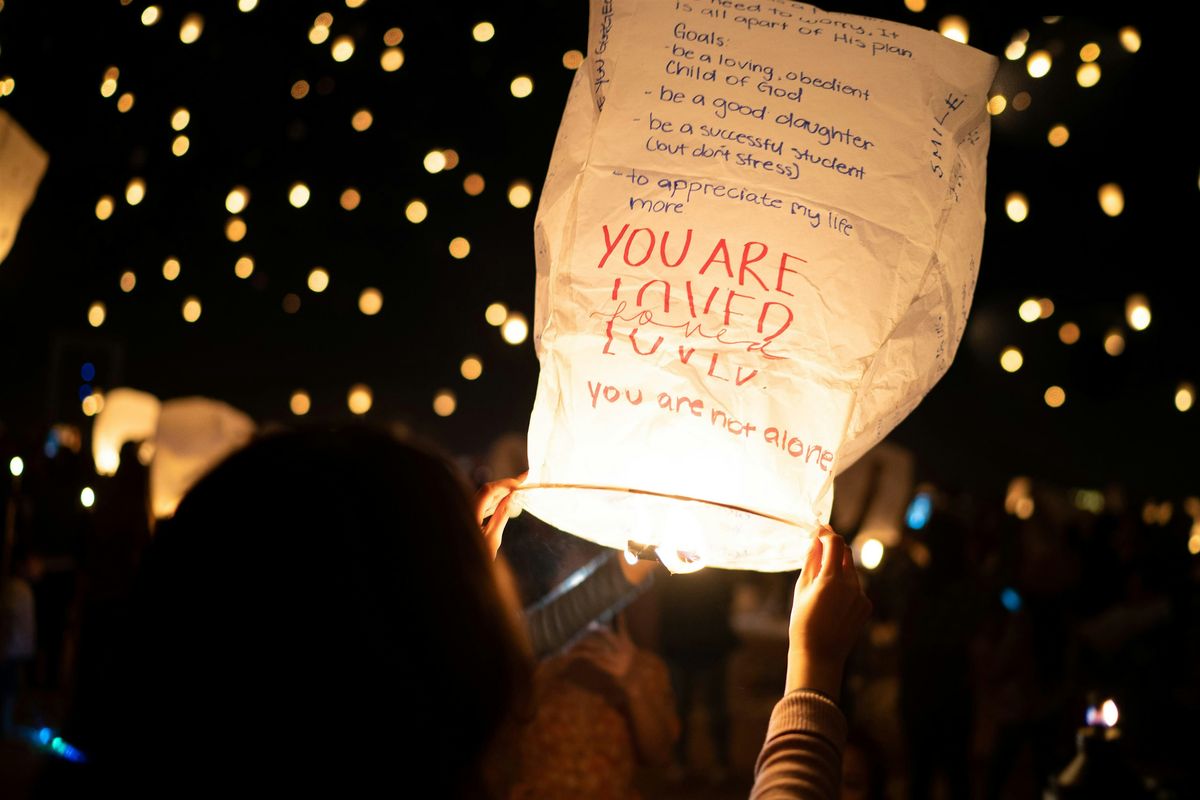 need to worry. It
is all apart of His plan.
Goals:
- be a loving, obedient
Child of God
- be a good daughter
- be a successful student
(but don't stress)
- to appreciate my life
more
YOU ARE
LOVED
Loved
you are not alone,
SMILE